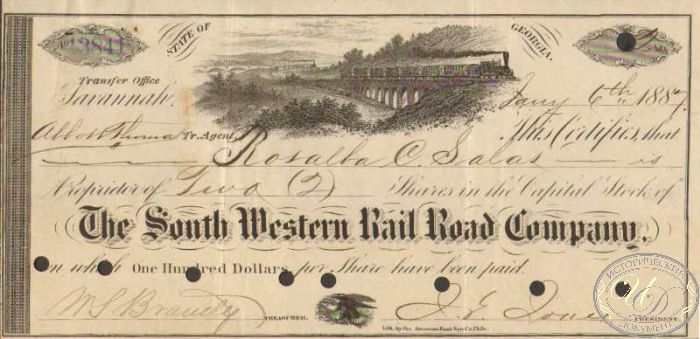 No 3841
STATE OF GEORGIA.
2
Transfer Office
Savannah, Jany 6th 1887.
Tr. Agent. This Certifies, that
Rosalba C. Salas is
Proprietor of Two (2) Shares in the Capital Stock of
The South Western Rail Road Company,
on which One Hundred Dollars, per Share have been paid.
W.S. Brantly TREASURER. J. E. Jones PRESIDENT.
Lith. by the American Bank Note Co. Phila.
ИСТОРИЧЕСКИЙ
ИД
ДОКУМЕНТ